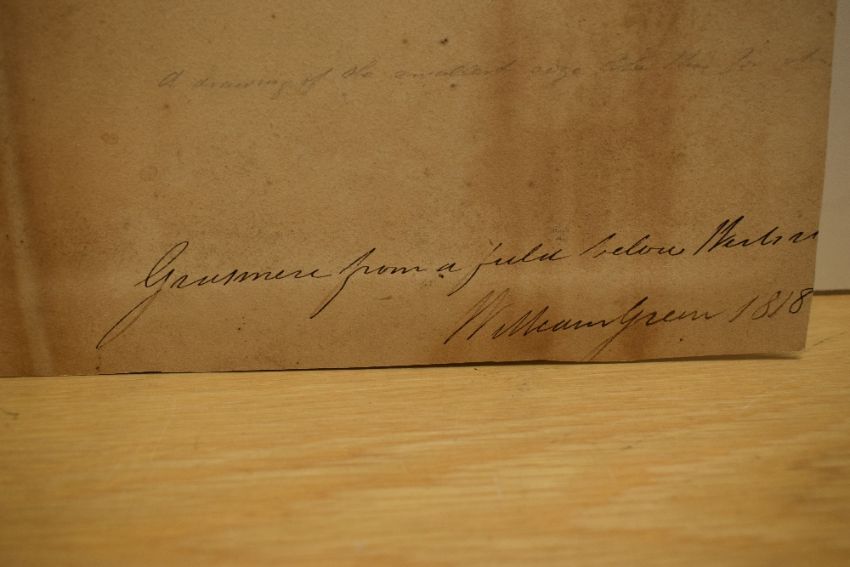 A drawing of the smallest size like this for
Grasmere from a field below
William Green 1818